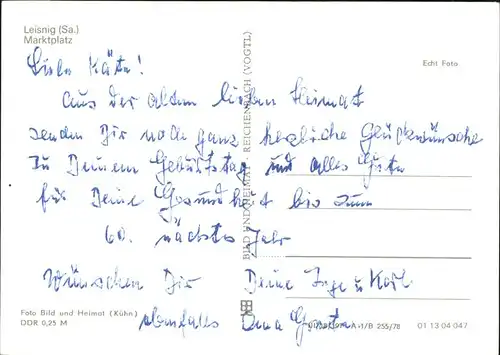 Leisnig (Sa.)
Marktplatz
Echt Foto
Liebe Käte!
Aus der alten lieben Heimat
senden Dir noch ganz herzliche Glückwünsche
zu Deinem Geburtstag und alles Gute
für Deine Gesundheit bis zum
60. nächstes Jahr
Wünschen Dir Deine Inge u Karl
ebenfalls
BILD UND HEIMAT REICHENBACH (VOGTL)
Foto Bild und Heimat (Kühn)
DDR 0,25 M
A 1/B 255/78 01 13 04 047